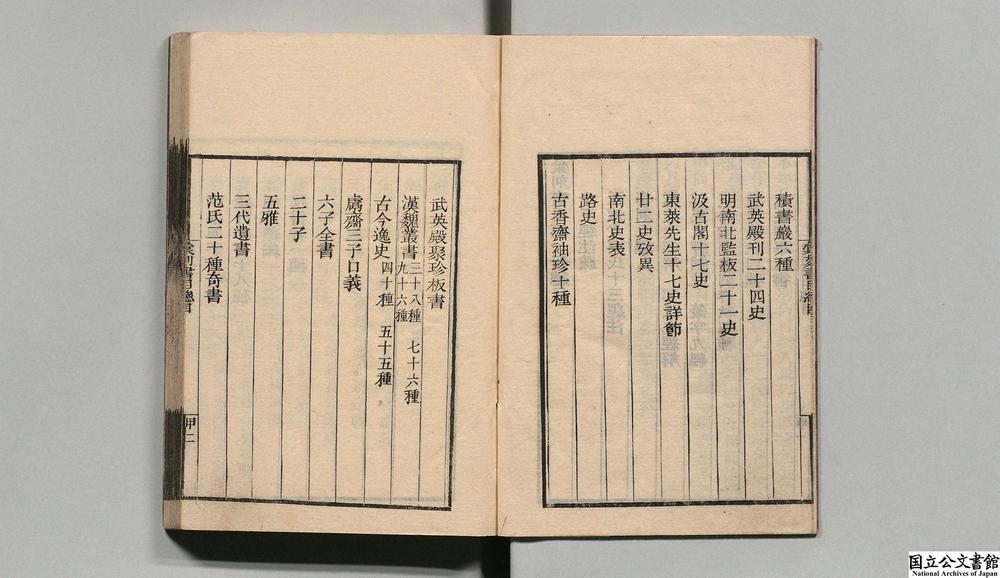 積書巖六種
武英殿刊二十四史
明南北監板二十一史
汲古閣十七史
東萊先生十七史詳節
廿二史攷異
南北史表
路史
古香齋袖珍十種
武英殿聚珍板書
漢魏叢書 三十八種 七十六種 九十六種
古今逸史 四十種 五十五種
鬳齋三子口義
六子全書
二十子
五雅
三代遺書
范氏二十種奇書
彙刻書目總目
甲二
国立公文書館
National Archives of Japan